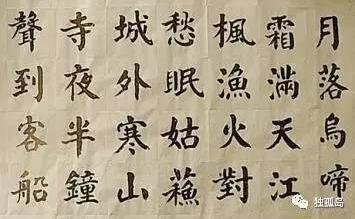 月落烏啼
霜滿天江
楓漁火對
愁眠姑蘓
城外寒山
寺夜半鐘
聲到客船
独孤岛